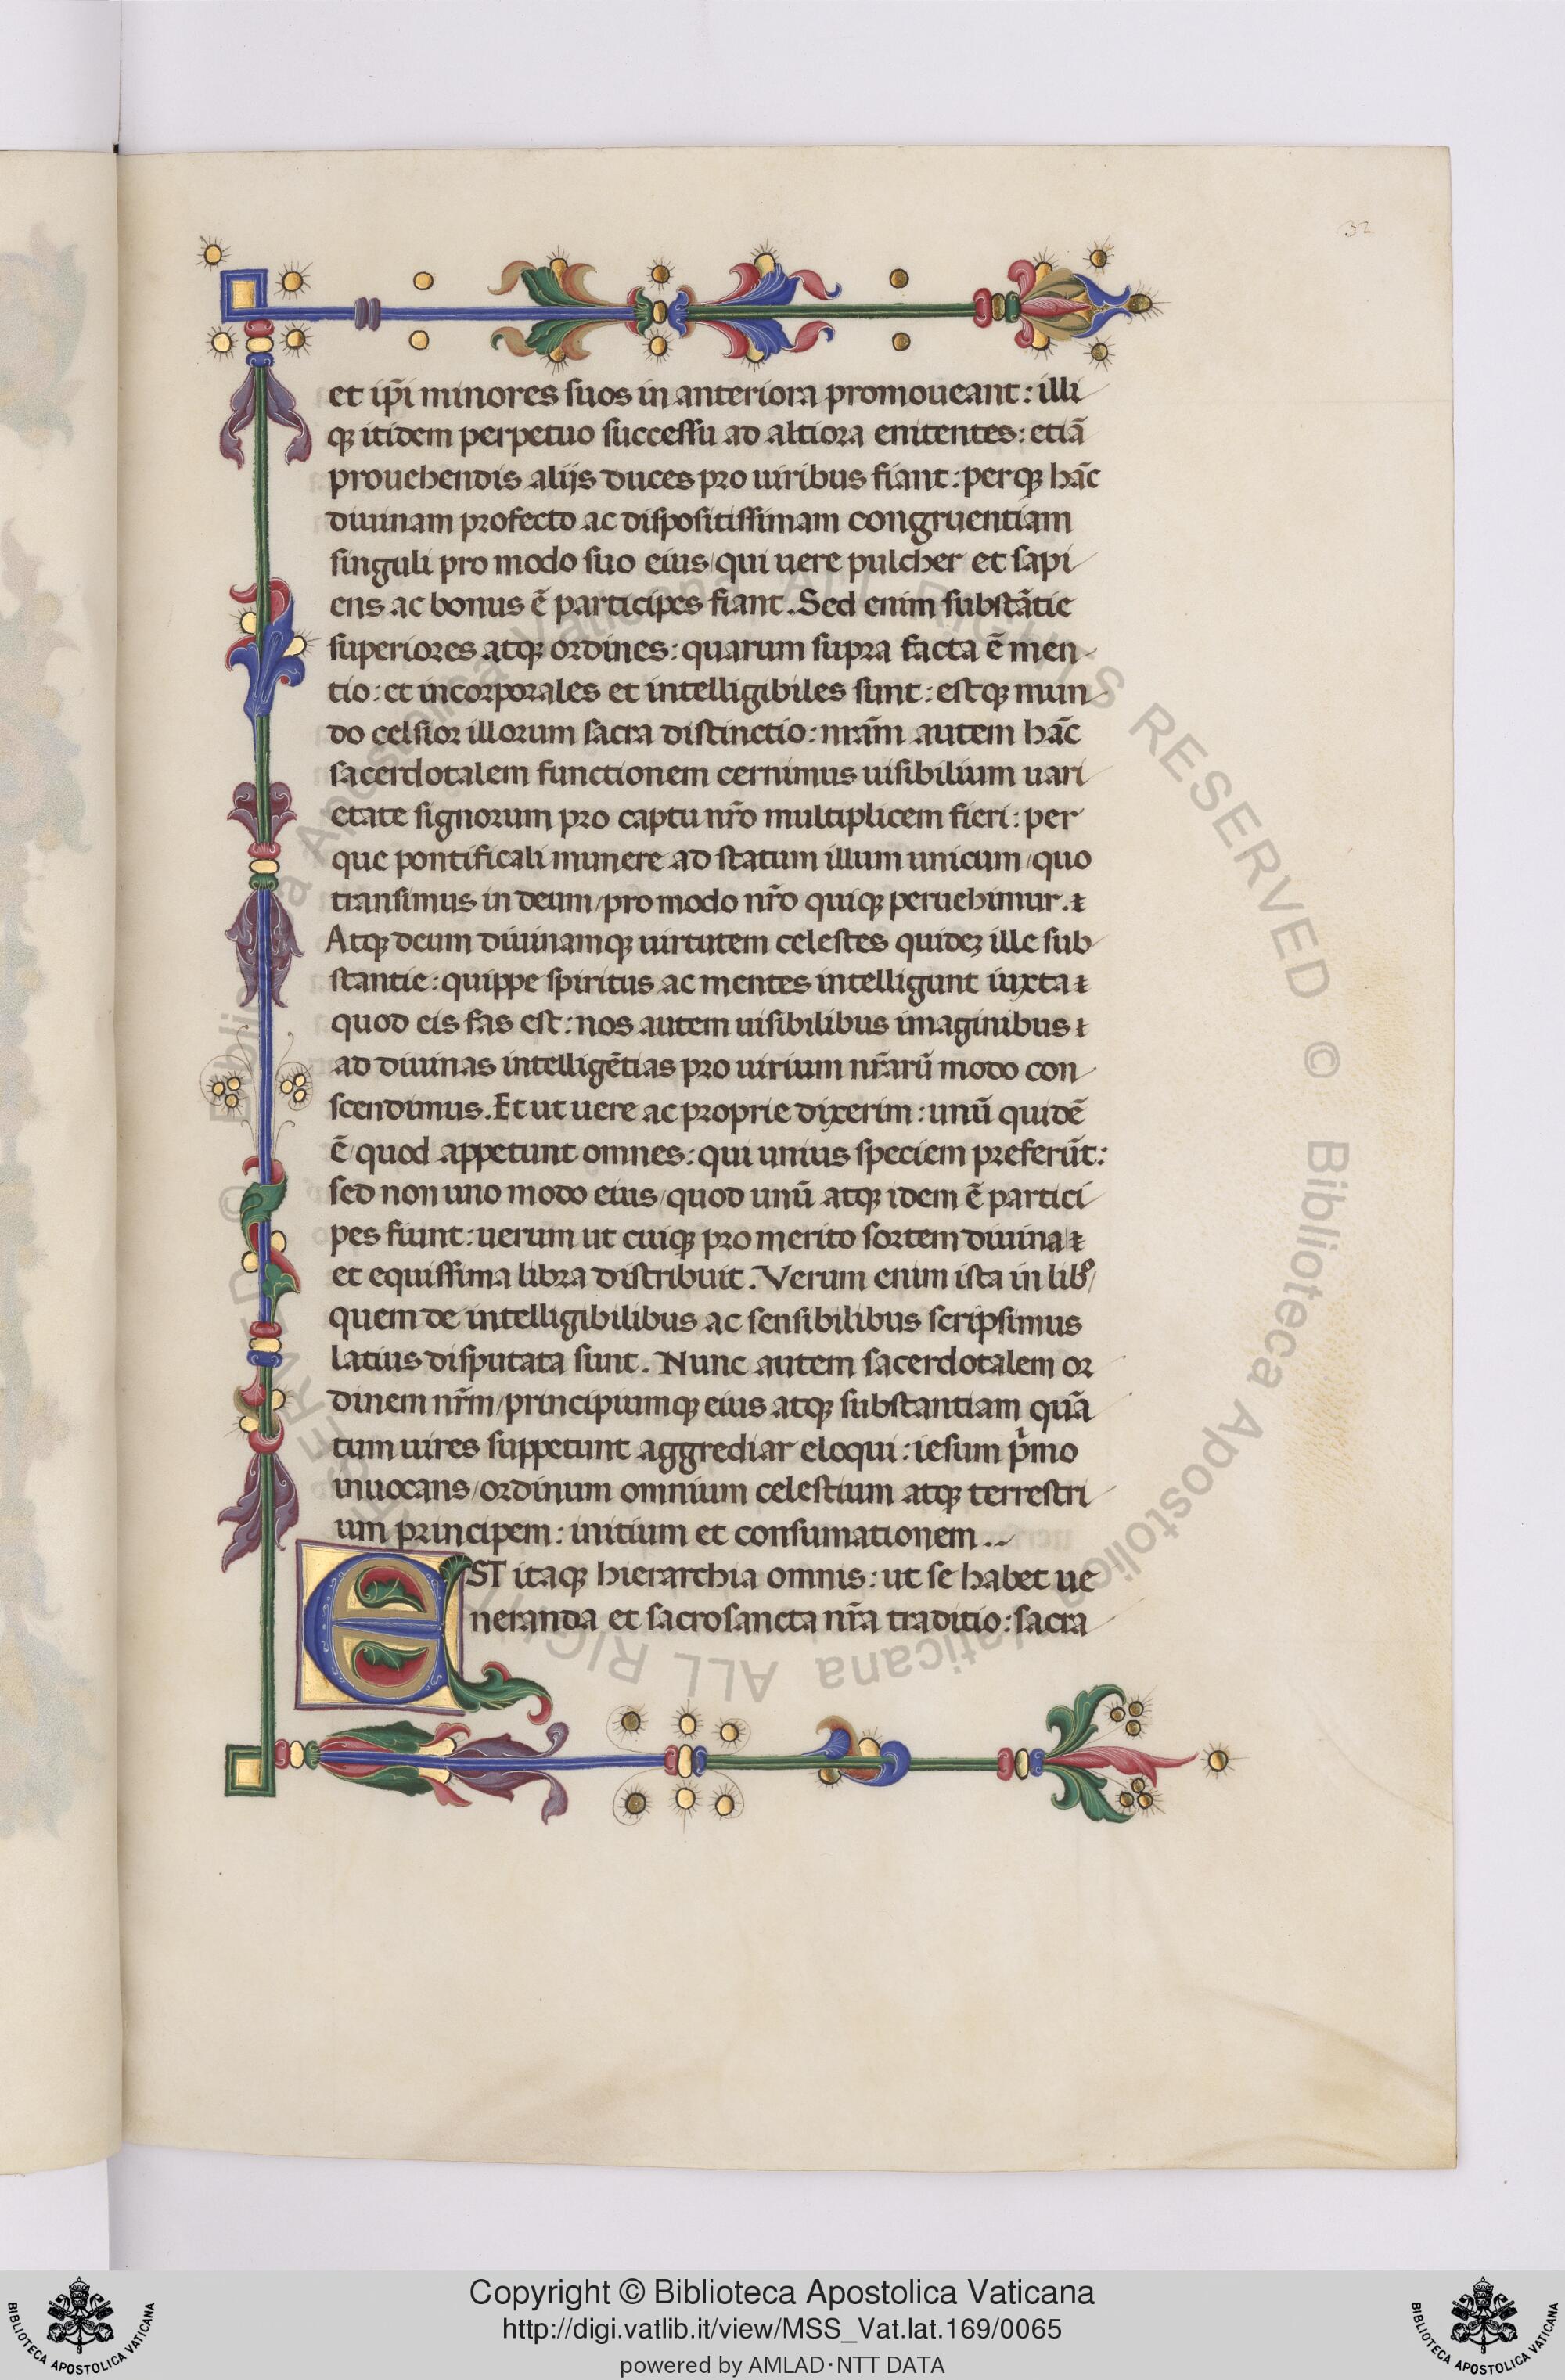 32
et ip̃i minores suos in anteriora promoueant: illi
qꝫ itidem perpetuo successu ad altiora enitentes: etiã
prouehendis alijs duces pro uiribus fiant: perqꝫ hãc
diuinam profecto ac dispositissimam congruentiam
singuli pro modo suo eius/qui uere pulcher et sapi
ens ac bonus ẽ participes fiant. Sed enim substãtie
superiores atqꝫ ordines: quarum supra facta ẽ men
tio: et incorporales et intelligibiles sunt: estqꝫ mun
do celsior illorum sacra distinctio: nrãm autem hãc
sacerdotalem functionem cernimus uisibilium uari
etate signorum pro captu nr̃o multiplicem fieri: per
que pontificali munere ad statum illum unicum/quo
transimus in deum/pro modo nr̃o quiqꝫ peruehimur.
Atqꝫ deum diuinamqꝫ uirtutem celestes quideꝫ ille sub
stantie: quippe spiritus ac mentes intelligunt iuxta
quod eis fas est: nos autem uisibilibus imaginibus
ad diuinas intelligẽtias pro uirium nr̃arũ modo con
scendimus. Et ut uere ac proprie dixerim: unũ quidẽ
ẽ/quod appetunt omnes: qui unius speciem preferũt:
sed non uno modo eius/quod unũ atqꝫ idem ẽ partici
pes fiunt: uerum ut cuiqꝫ pro merito sortem diuina
et equissima libra distribuit. Verum enim ista in libº/
quem de intelligibilibus ac sensibilibus scripsimus
latius disputata sunt. Nunc autem sacerdotalem or
dinem nr̃m/principiumqꝫ eius atqꝫ substantiam quã
tum uires suppetunt aggrediar eloqui: iesum pͥmo
inuocans/ordinum omnium celestium atqꝫ terrestri
um principem: initium et consumationem..
EST itaqꝫ hierarchia omnis: ut se habet ue
neranda et sacrosancta nr̃a traditio: sacra
© Biblioteca Apostolica Vaticana ALL RIGHTS RESERVED © Biblioteca Apostolica Vaticana ALL RIGHTS RESERVED
Copyright © Biblioteca Apostolica Vaticana
http://digi.vatlib.it/view/MSS_Vat.lat.169/0065
powered by AMLAD·NTT DATA
BIBLIOTECA APOSTOLICA VATICANA
BIBLIOTECA APOSTOLICA VATICANA